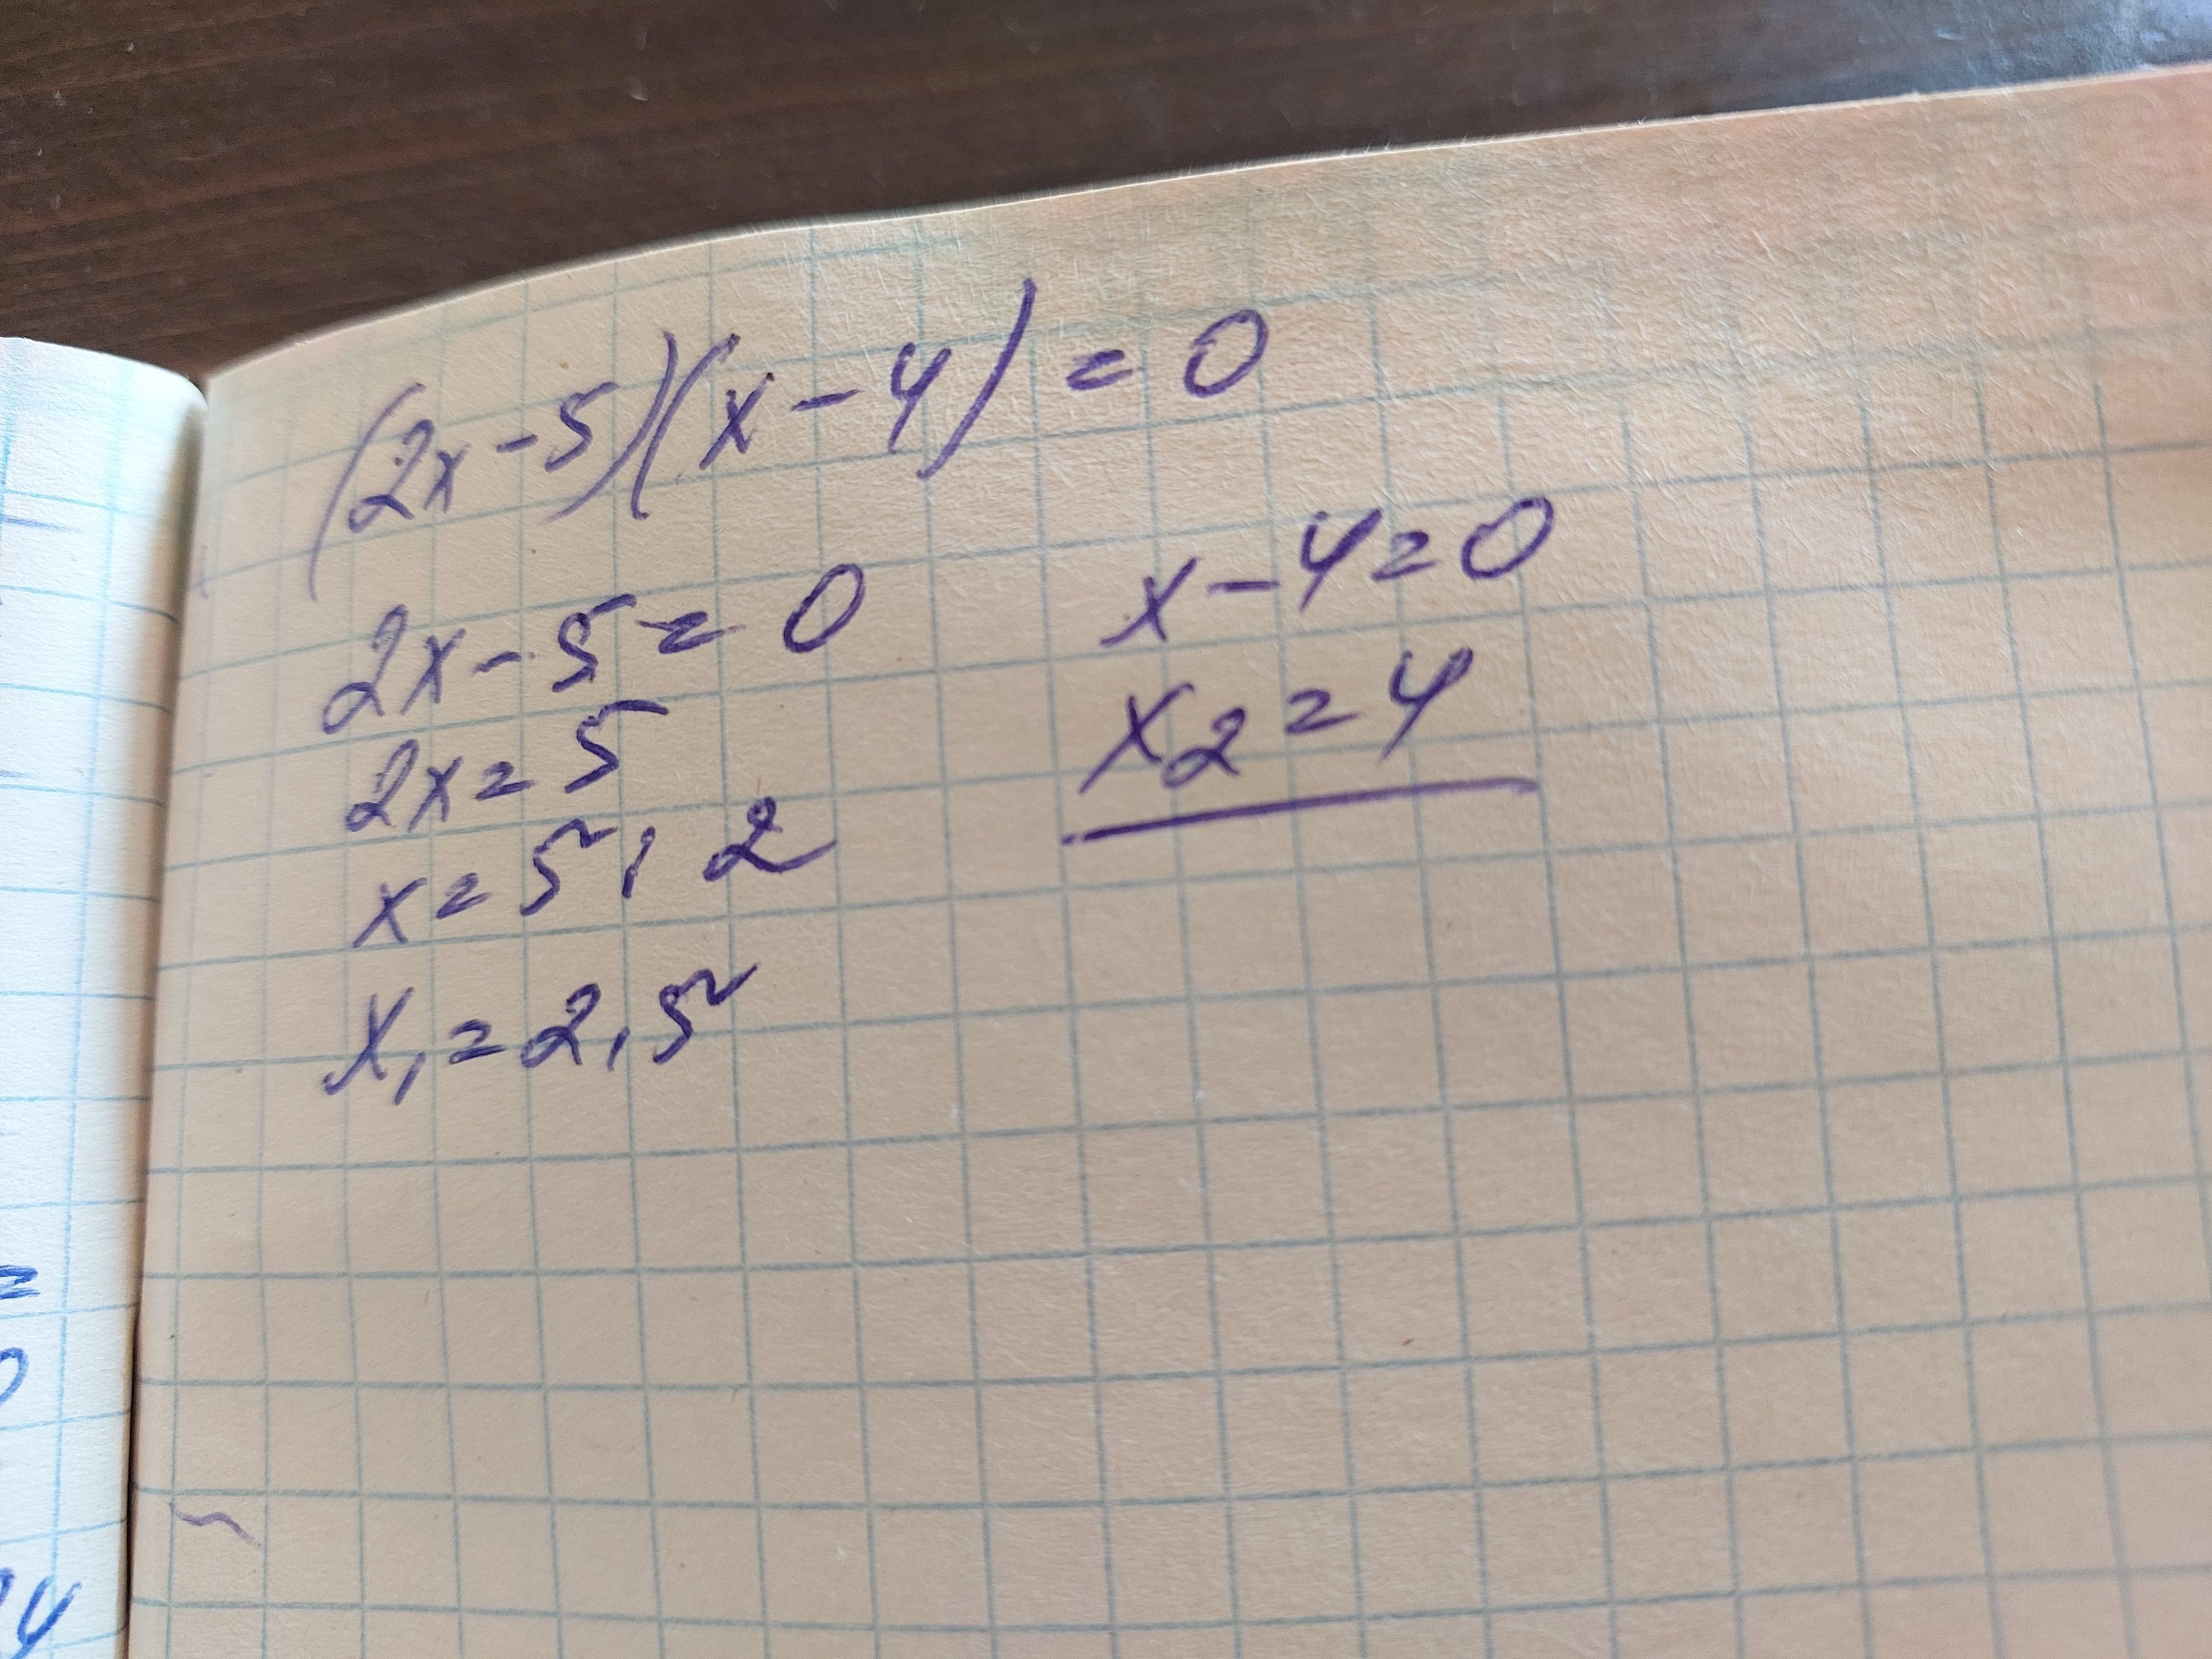 (2x-5)(x-4) = 0
2x-5=0
2x=5
x=5:2
x₁=2,5
x-4=0
x₂=4
=
0
14